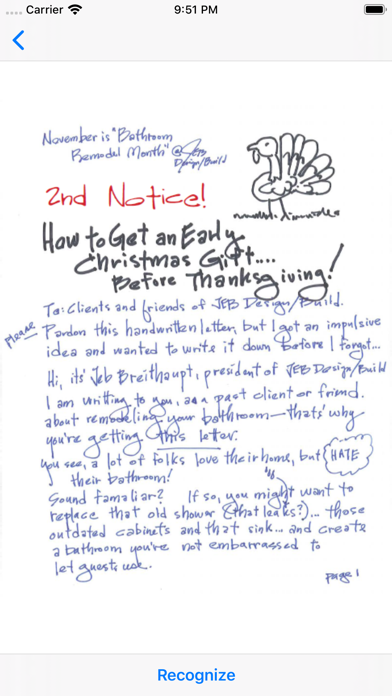 Carrier
9:51 PM
November is "Bathroom
Remodel Month" @ JEB
Design/Build
2nd Notice!
How to Get an Early
Christmas Gift....
Before Thanksgiving!
To: Clients and friends of JEB Design/Build.
Please Pardon this handwritten letter, but I got an impulsive
idea and wanted to write it down before I forgot...
Hi, its' Jeb Breithaupt, president of JEB Design/Build
I am writting to you, as a past client or friend.
about remodeling your bathroom—thats' why
you're getting this letter.
You see, a lot of folks love their home, but HATE
their bathroom!
Sound familiar? If so, you might want to
replace that old shower (that leaks?)... those
outdated cabinets and that sink... and create
a bathroom you're not embarrassed to
let guests use.
page 1
Recognize